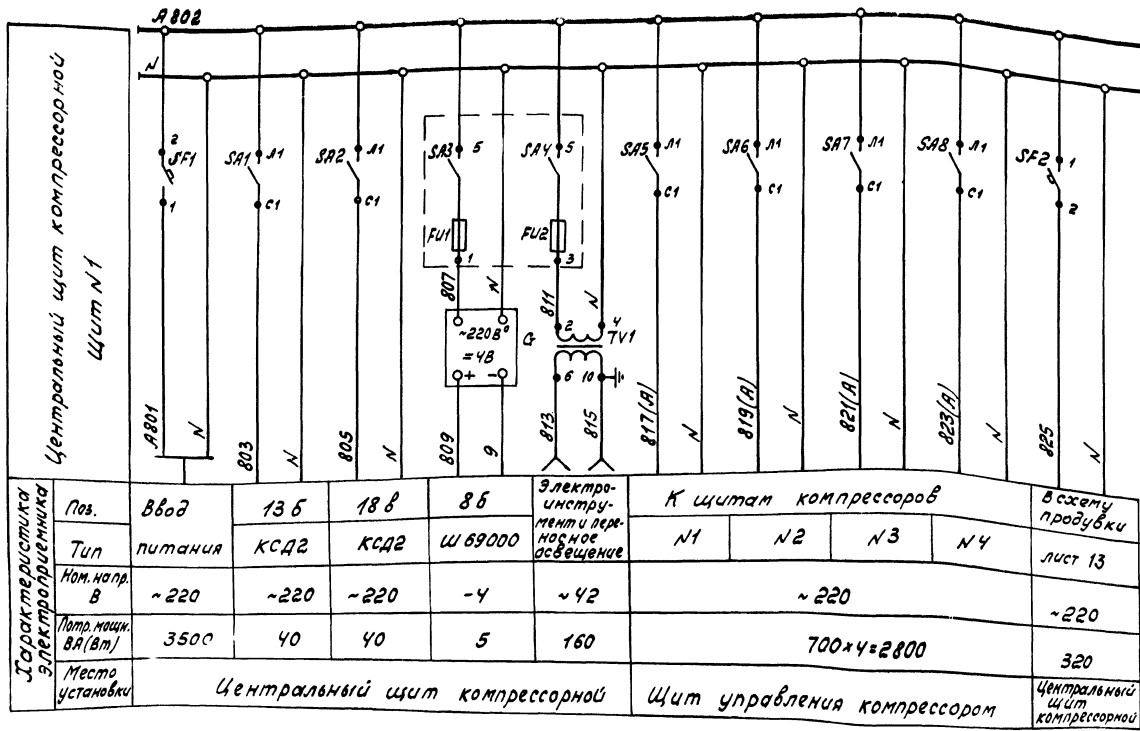 А802
N
Центральный щит компрессорной
Щит N1
2
SF1
1
SA1 Л1
С1
SA2 Л1
С1
SA3 5
FU1
1
SA4 5
FU2
3
SA5 Л1
С1
SA6 Л1
С1
SA7 Л1
С1
SA8 Л1
С1
SF2 1
2
807
N
811
N
~220В
=4В
+ -
G
2
4
TV1
6
10
А801
N
803
N
805
N
809
9
813
815
817(А)
N
819(А)
N
821(А)
N
823(А)
N
825
N
Характеристика
электроприемника
Поз.
Ввод
13б
18в
8б
Электро-
инстру-
мент и пере-
носное
освещение
К щитам компрессоров
В схему
продувки
Тип
питания
КСД2
КСД2
Ш69000
N1
N2
N3
N4
лист 13
Ном. напр.
В
~220
~220
~220
-4
~42
~220
~220
Потр. мощн.
ВА(Вт)
3500
40
40
5
160
700×4=2800
320
Место
установки
Центральный щит компрессорной
Щит управления компрессором
Центральный
щит
компрессорной